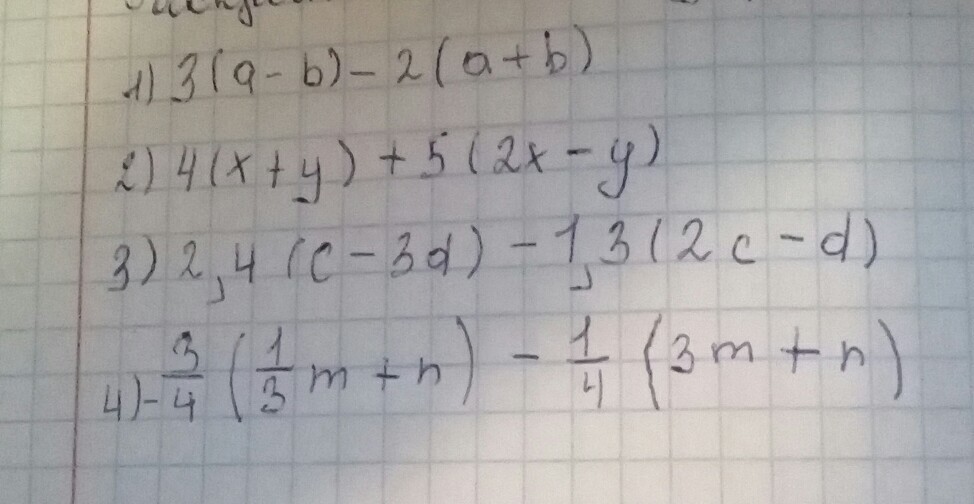 1) 3(a - b) - 2(a + b)
2) 4(x + y) + 5(2x - y)
3) 2,4(c - 3d) - 1,3(2c - d)
4) -3/4(1/3m + n) - 1/4(3m + n)